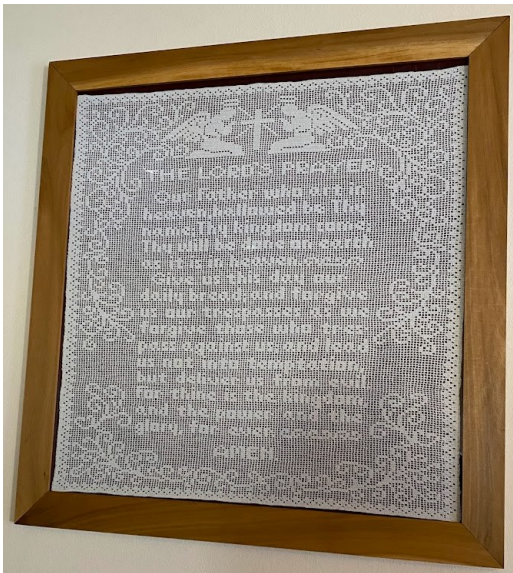 THE LORDS PRAYER
Our Father who art in
heaven, hallowed be Thy
name. Thy kingdom come.
Thy will be done on earth
as it is in heaven
Give us this day our
daily bread, and forgive
us our trespasses as we
forgive those who tres-
pass against us, and lead
us not into temptation,
but deliver us from evil
for thine is the kingdom
and the power and the
glory, for ever
AMEN